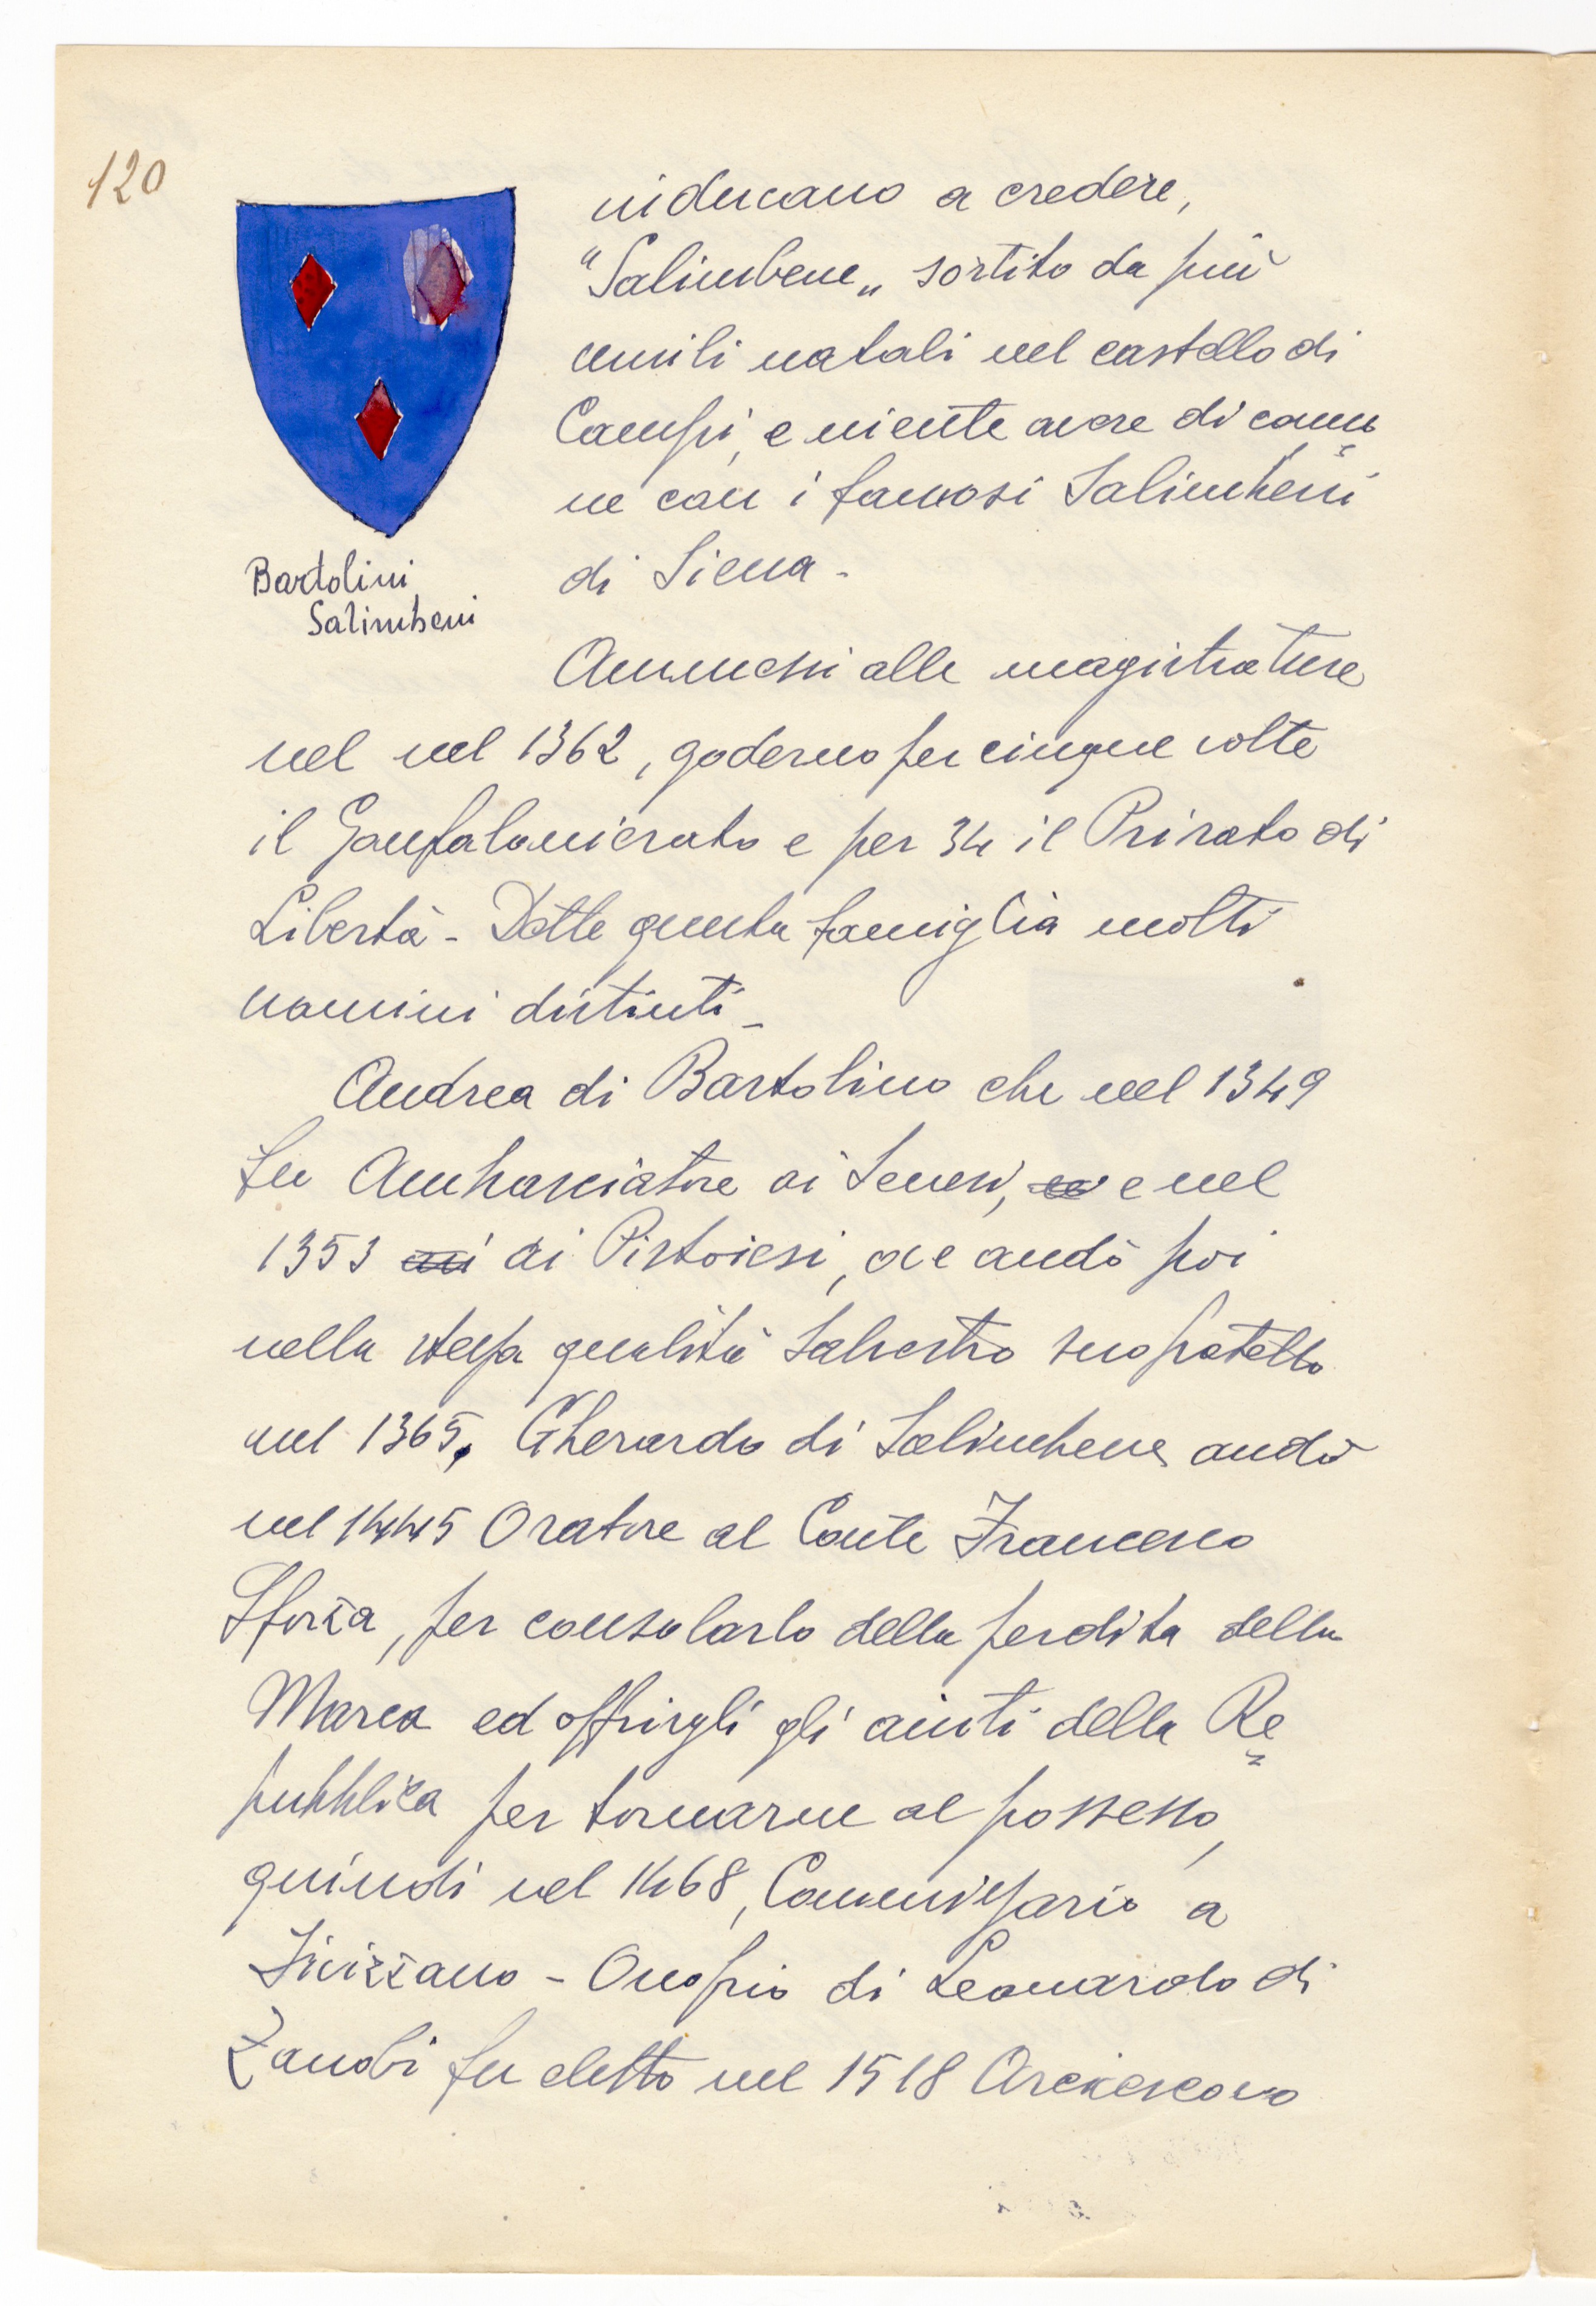 120
inducano a credere,
"Salimbene„ sortito da più
umili natali nel castello di
Campi, e niente avere di comu
ne con i famosi Salimbeni
di Siena -
Bartolini
Salimbeni
Ammessi alle magistrature
nel nel 1362, goderno per cinque volte
il Gonfalonierato e per 34 il Priorato di
Libertà - Dette questa famiglia molti
uomini distinti -
Andrea di Bartolino che nel 1349
fu Ambasciatore ai Senesi, e nel
1353 ai ai Pistoiesi, ove andò poi
nella stessa qualità Salvestro suo fratello
nel 1365. Gherardo di Salimbene andò
nel 1445 Oratore al Conte Francesco
Sforza, per consolarlo della perdita della
Marca ed offrirgli gli aiuti della Re
pubblica per tornarne al possesso,
quindi nel 1468, Commissario a
Fivizzano - Onofrio di Leonardo di
Zanobi fu eletto nel 1518 Arcivescovo